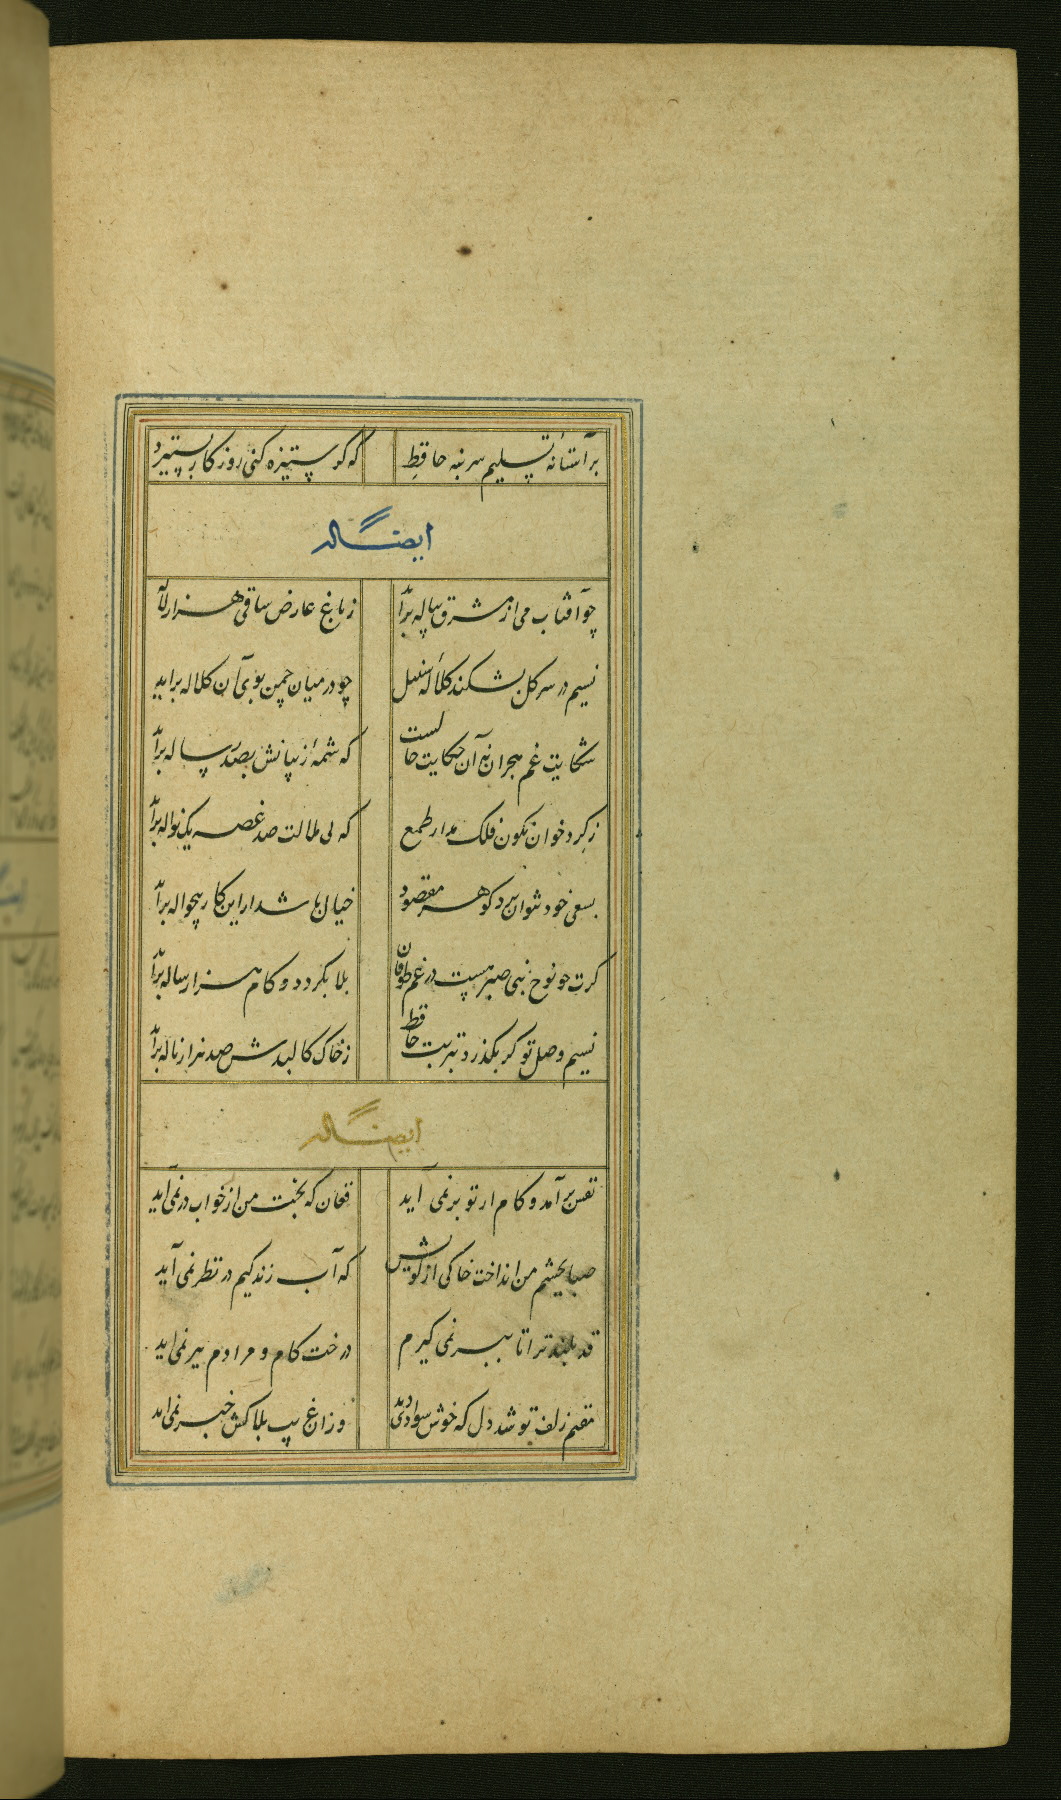 بر آستانه تسلیم سر بنه حافظ که گر ستیزه کنی روزگار بستیزد
ایضاً له
چو آفتاب می از مشرق پیاله برآید ز باغ عارض ساقی هزار لاله
نسیم در سر گل بشکند کلاله سنبل چو در میان چمن بوی آن کلاله برآید
شکایت غم هجران نه آن حکایت حالست که شمه از بیانش بصد رساله برآید
ز گرد خوان نگون فلک مدار طمع که بی ملالت صد غصه یک نواله برآید
بسعی خود نتوان برد گوهر مقصود خیال باشد این کار بیحواله برآید
گرت چو نوح نبی صبر هست در غم طوفان بلا بگردد و کام هزار ساله برآید
نسیم وصل تو گر بگذرد بتربت حافظ ز خاک کالبدش صد هزار ناله برآید
ایضاً له
نفس برآمد و کام از تو بر نمی آید فغان که بخت من از خواب در نمی آید
صبا بچشم من انداخت خاکی از کویش که آب زندگیم در نظر نمی آید
قد بلند ترا تا ببر نمی گیرم درخت کام و مرادم ببر نمی آید
مقیم زلف تو شد دل که خوش سوادی دید وز آغ بب بلاکش خبر نمی آید